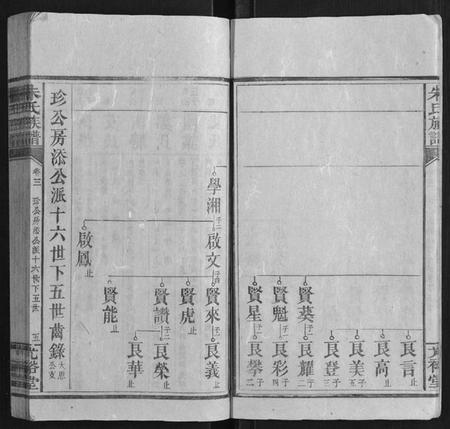 朱氏族譜
良言 止
良高 止
良美 子五
良登 子三
賢葵 子一
良耀 子二
賢魁 子一
良彩 子四
賢星 子一
良攀 子二
元裕堂
學湘 子二
啟文 子四
賢來 子一
良義 止
賢虎 止
賢讚 子二
良榮 止
良華 止
賢能 止
啟鳳 止
珍公房添公派十六世下五世齒錄 大思公支
朱氏族譜
卷三
珍公房添公派十六世下五世
五
元裕堂